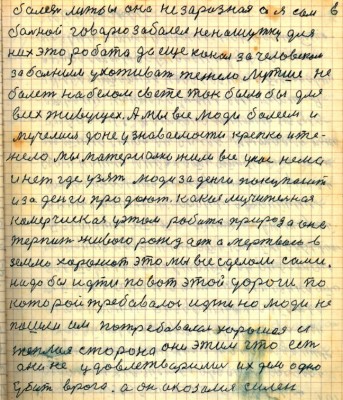 болеет литвы она не заразная а я сам в
болной говарю заболел не на шутку для
них это робота да еще какая за человеком
за болним ухоживат тежело лутше не
болет на белом свете так было бы для
всих живущех. А мы все люди болеем и
мучемся до не узнаваемости крепко и те-
жело мы материално жили все упал нема
и нет где узят люди за денги покупают
и за денги продают. какая мучителная
камерческая у этом робота природа она
терпит живого рождает а мертваго в
землю харонют это мы все сделом сами.
надо бы идти по вот этой дороги по
которой требавалос идти но люди не
пошли им потребавалас хорошая и
теплая сторона они этим что ест
они не удовлетварили их дело одно
убит врага. а он оказался силен